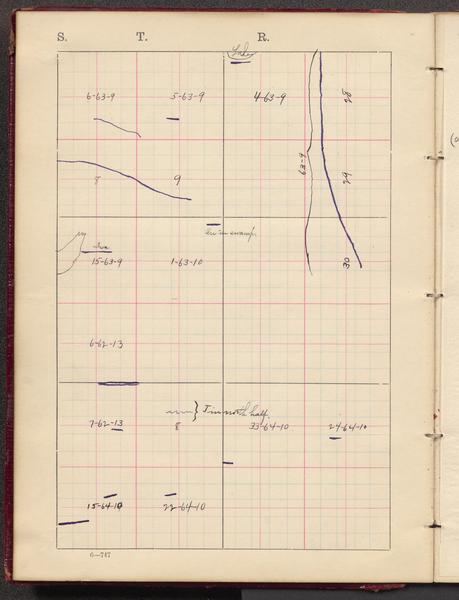 S. T. R.
Lake
6-63-9 5-63-9 4-63-9 28
8 9 63-9 29
in swamp
15-63-9 1-63-10 30
6-62-13
} I in north half.
7-62-13 8 33-64-10 24-64-10
15-64-10 22-64-10
6—747